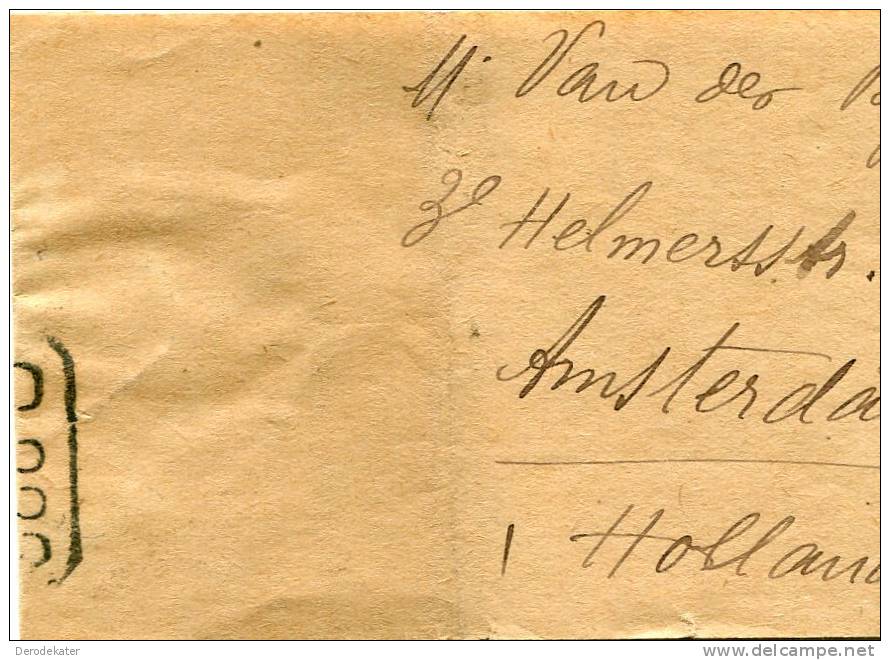 M. Van der
3e Helmersstr.
Amsterda
Hollan
Derodekater
www.delcampe.net